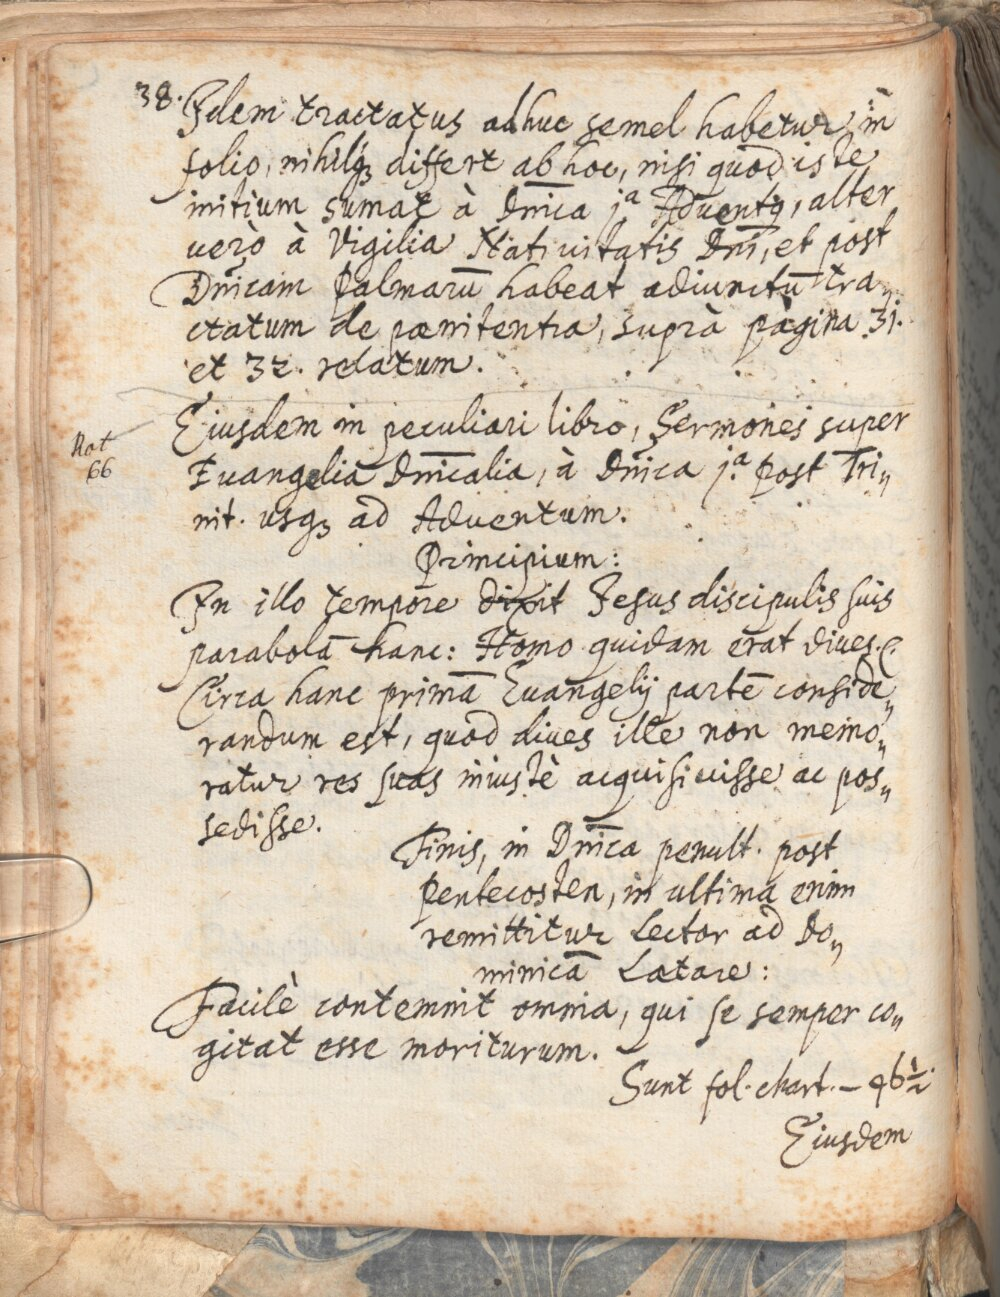 38. Idem tractatus adhuc semel habetur in
folio, nihilq₃ differt ab hoc, nisi quod iste
initium sumat à Dn̄ica j.ª Adventꝰ, alter
verò à Vigilia Nativitatis Dn̄i, et post
Dn̄icam Palmarū habeat adiunctū tra„
ctatum de pœnitentia, suprà pàgina 31.
et 32. relatum.
Eiusdem in peculiari libro, Sermones super
Not
66
Euangelia Dn̄icalia, à Dn̄ica j.ª post Tri„
nit. usq₃ ad Adventum.
Principium:
In illo tempore dixit Jesus discipulis suis
parabolā hanc: Homo quidam erat dives.
Circa hanc primā Euangelij partē conside„
randum est, quod dives ille non memo„
ratur res suas iniustè acquisivisse ac pos„
sedisse.
Finis, in Dn̄ica penult. post
Pentecosten, in ultima enim
remittitur Lector ad Do„
minicā Lætare:
Facilè contemnit omnia, qui se semper co„
gitat esse moriturum.
Sunt fol. chart. — 96½.
Eiusdem